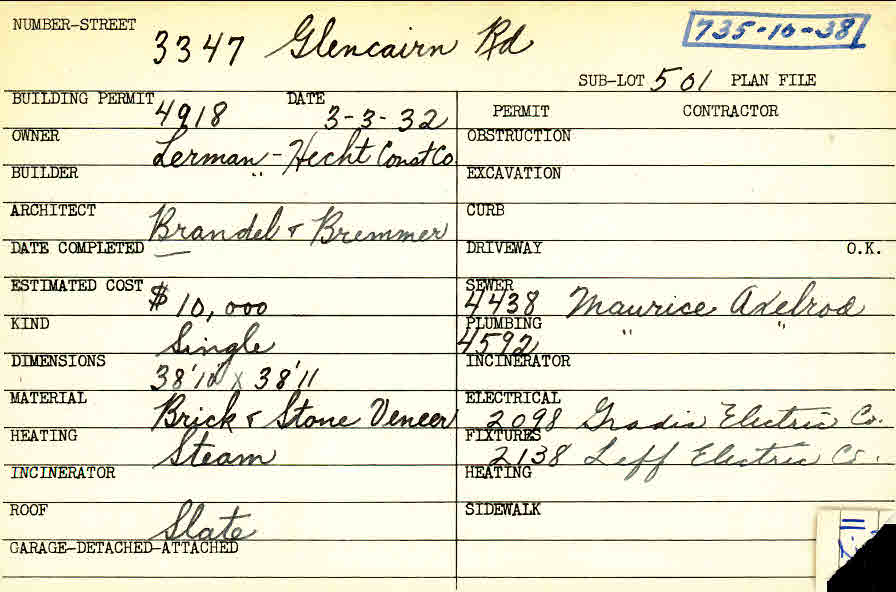 NUMBER-STREET 3347 Glencairn Rd 735-10-38
SUB-LOT 501 PLAN FILE
BUILDING PERMIT 4918 DATE 3-3-32
PERMIT CONTRACTOR
OWNER Lerman - Hecht Const Co
OBSTRUCTION
BUILDER "
EXCAVATION
ARCHITECT Brandel & Bremmer
CURB
DATE COMPLETED —
DRIVEWAY O.K.
ESTIMATED COST $10,000
SEWER 4438 Maurice Axelrod
KIND Single
PLUMBING 4592 " "
DIMENSIONS 38'10" x 38'11
INCINERATOR
MATERIAL Brick & Stone Veneer
ELECTRICAL 2098 Gradis Electric Co.
HEATING Steam
FIXTURES 2138 Leff Electric Co.
INCINERATOR
HEATING
ROOF Slate
SIDEWALK
GARAGE-DETACHED-ATTACHED